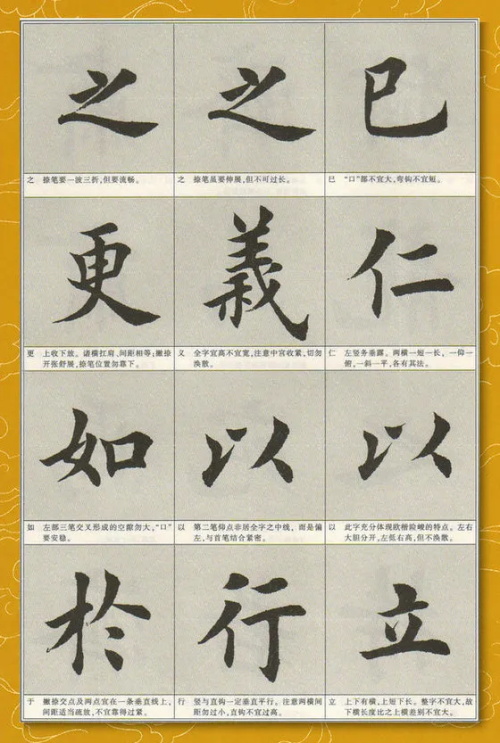 之 之 已
之 捺笔要一波三折,但要流畅。
之 捺笔虽要伸展,但不可过长。
已 “口”部不宜大,弯钩不宜短。
更 義 仁
更 上收下放。诸横扛肩、间距相等;撇捺
开张舒展,捺笔位置勿靠下。
义 全字宜高不宜宽,注意中宫收紧,切勿
涣散。
仁 左竖务垂露。两横一短一长,一仰一
俯,一斜一平,各有其法。
如 以 以
如 左部三笔交叉形成的空隙勿大,“口”
要安稳。
以 第二笔仰点非居全字之中线,而是偏
左,与首笔结合紧密。
以 此字充分体现欧楷险峻的特点。左右
大胆分开,左低右高,但不涣散。
於 行 立
于 撇捺交点及两点宜在一条垂直线上,
间距适当疏放,不宜靠得过紧。
行 竖与直钩一定垂直平行。注意两横间
距勿过小,直钩不宜过高。
立 上下有横,上短下长。整字不宜大,故
下横长度比之上横差别不宜大。